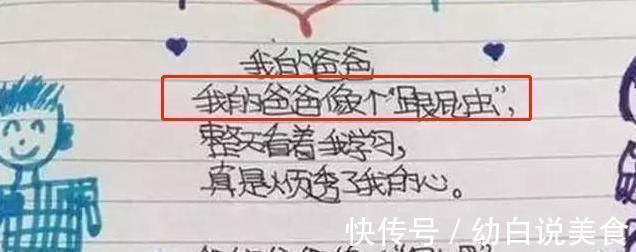 我的爸爸
我的爸爸像个“跟屁虫”，
整天看着我学习，
真是烦透了我的心。
快传号 / 幼白说美食